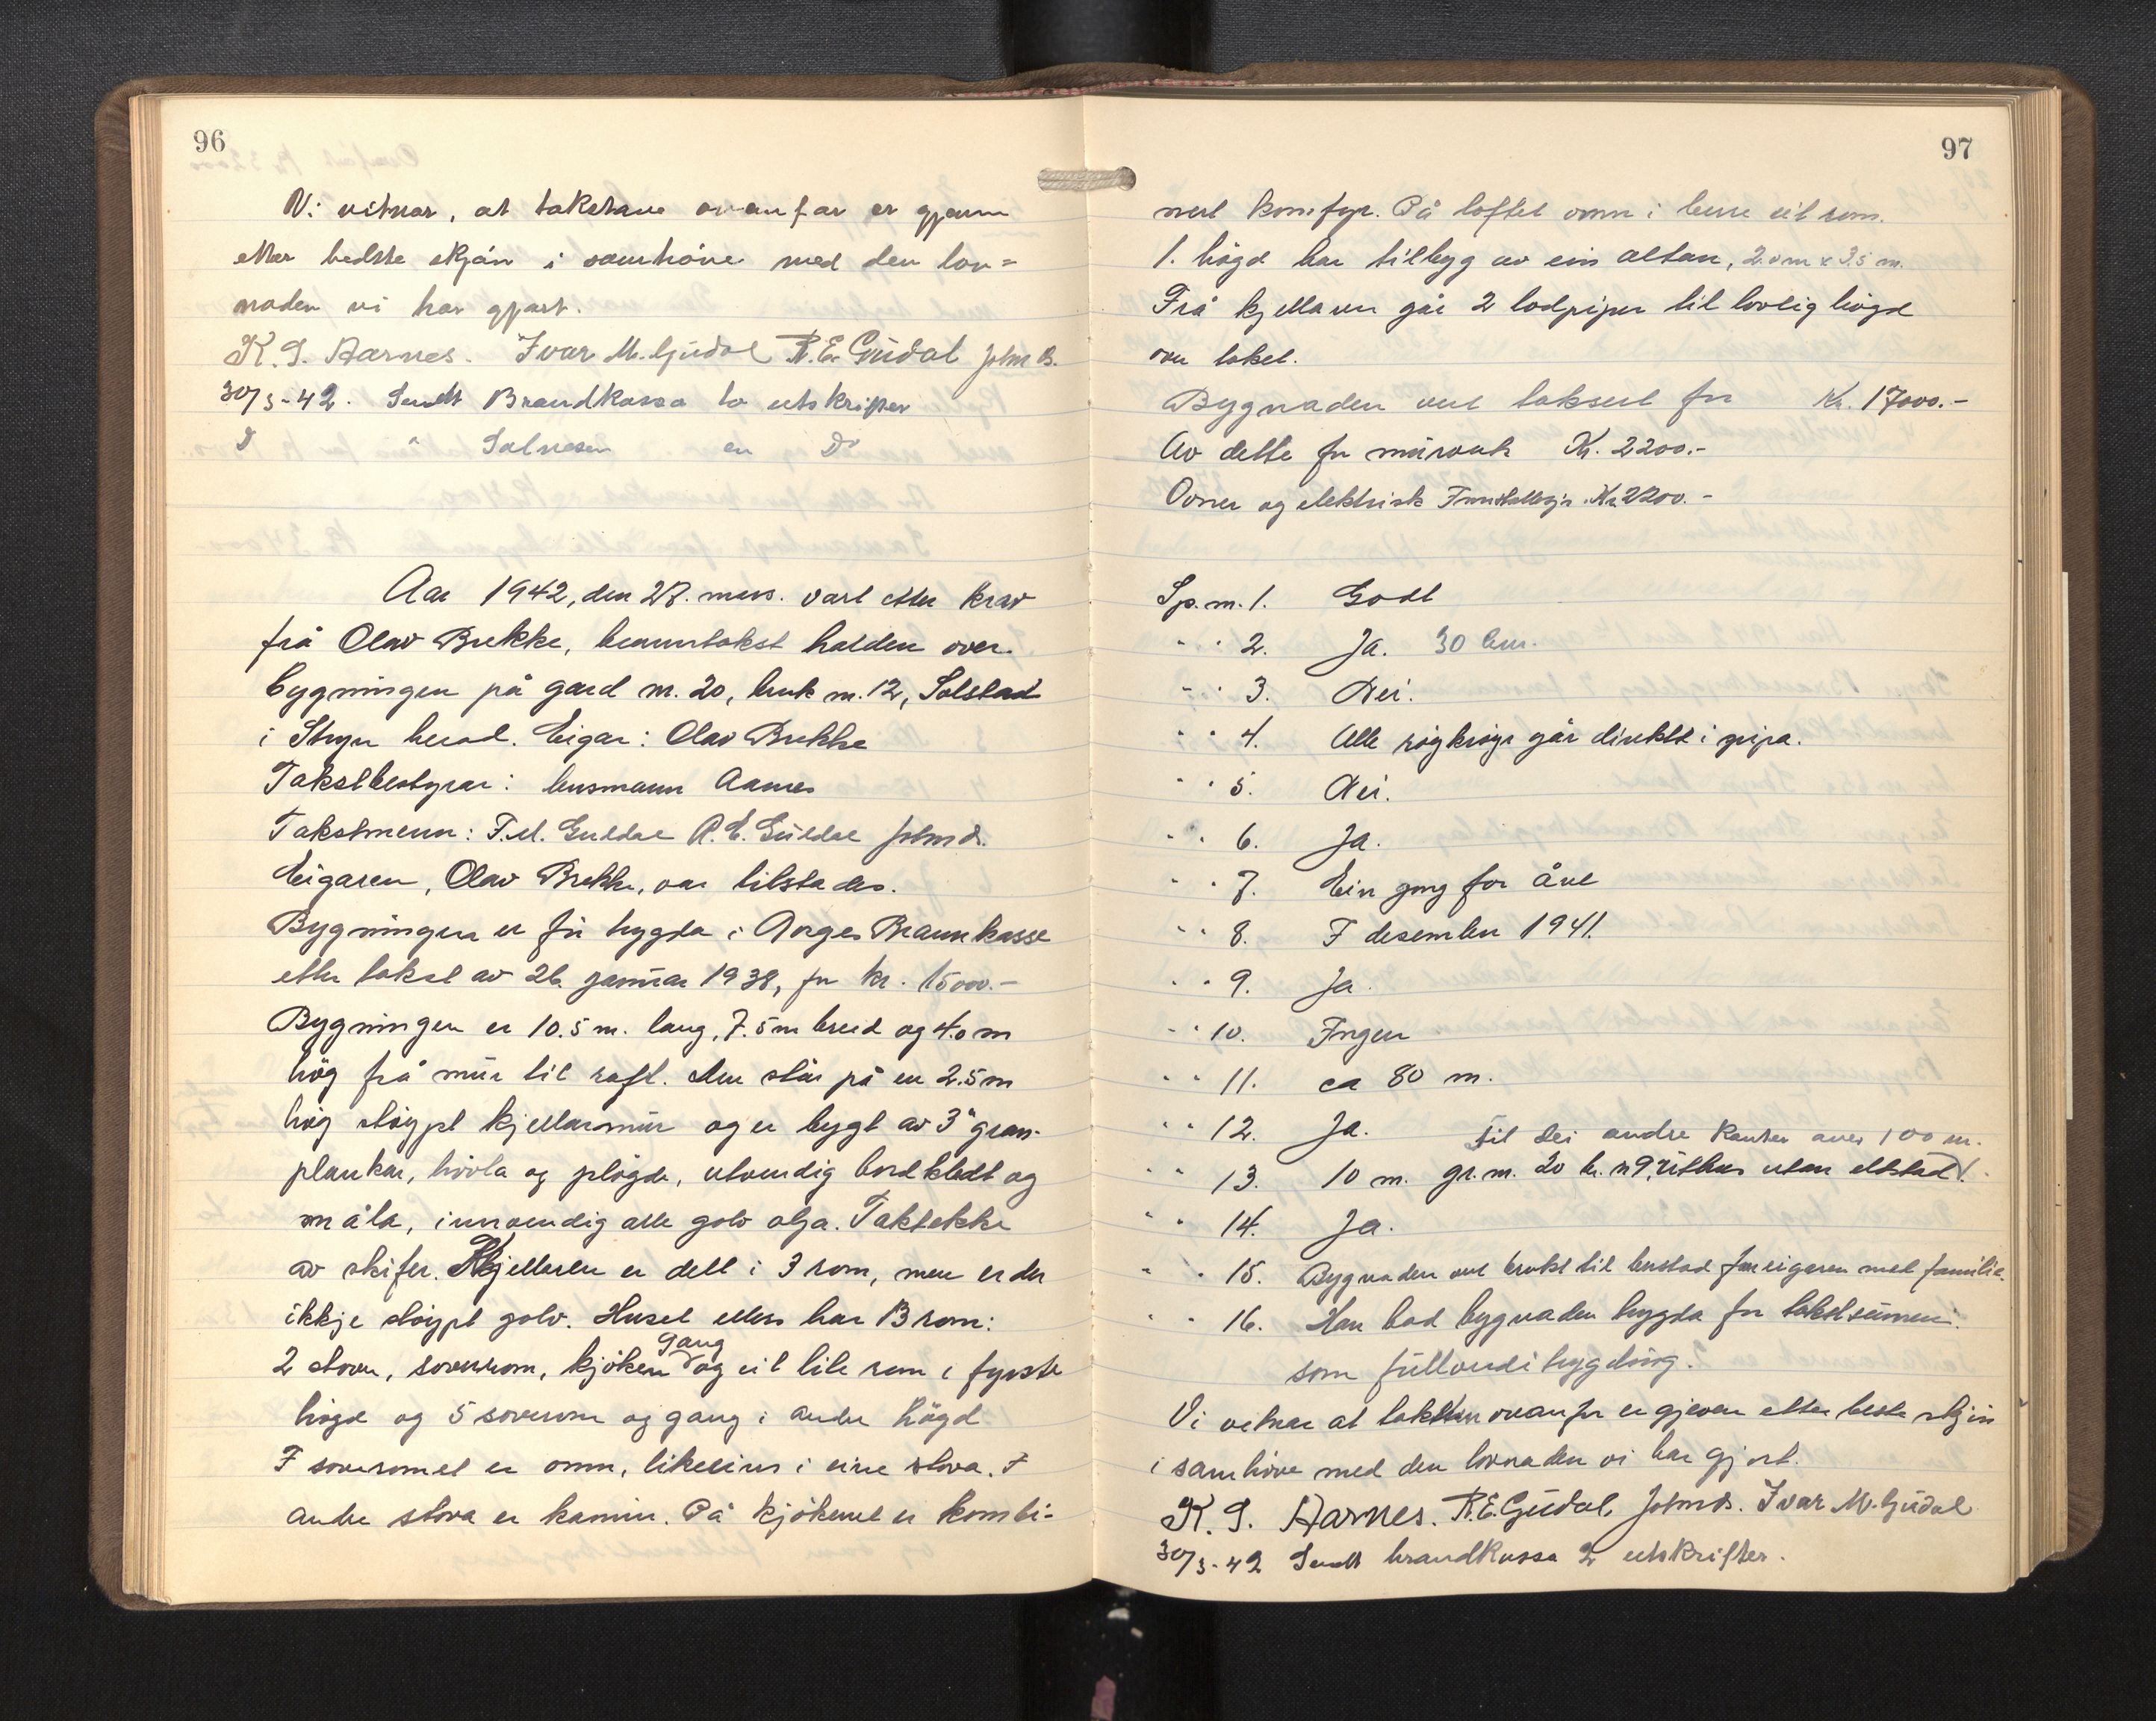 96
Vi vitnar, at takstane ovanfor er gjevne
etter bedste skjön i samhöve med den lov=
naden vi har gjort.
K. S. Aarnes. Ivar M. Gjùdal R.E. Gùdal Johns.
30/3-42. Sendt Brandkassa to utskrifter
D " en Do
Aar 1942, den 27. mars. vart etter krav
frå Olav Brekke, branntakst halden over
bygningen på gard nr. 20, bruk nr. 12, Solstad
i Stryn herad. Eigar: Olav Brekke
Takstbestyrar: lensmann Aarnes
Takstmenn: R. E. Guldal Johns.
Eigaren, Olav Brekke, var tilstades.
Bygningen er för trygda i Norges Brannkasse
etter takst av 26 januar 1938, for kr. 15000.-
Bygningen er 10.5 m. lang, 7.5 m breid og 4.0 m
hög frå mùr til raft. Den står på en 2.5 m
hög stöypt kjellarmùr og er bygt av 3" gran-
plankar, hövla og plögde, utvendig bordkledt og
måla, innvendig alle golv olja. Taktekke
av skifer. Kjelleren er delt i 3 rom, men er der
ikkje stöypt golv. Huset elles har 13 rom:
2 stover, soverom, kjöken gang og eit lite rom i fyrste
högd og 5 soverom og gang i andre högd.
I soveromet er omn, likeeins i eine stova. I
andre stova er kamin. På kjökenet er kombi-
97
nert komfyr. På loftet omn i berre eit rom.
1. högd har tilbyg av ein altan, 2.0 m x 3.5 m.
Frå kjellaren går 2 lodpiper til lovlig högd
over taket.
Bygnaden vert taksert for Kr. 17000.-
Av dette for mùrverk Kr. 2200.-
Ovner og elektrisk Installasjon Kr 2200.-
Sp.m. 1. Godt
" " 2. Ja. 30 cm.
" " 3. Nei.
" " 4. Alle röykröyr går direkte i pipa.
" " 5. Nei.
" " 6. Ja.
" " 7. Ein gong for året
" " 8. I desember 1941.
" " 9. Ja.
" " 10. Ingen
" " 11. ca 80 m.
" " 12. Ja. Til dei andre kanter over 100 m.
" " 13. 10 m. gr.nr. 20 br. nr 9, ùthus utan eldstad.
" " 14. Ja.
" " 15. Bygnaden vert brukt til bustad for eigaren med familie.
" " 16. Han bad bygnaden trygda for takstsùmmen
som fùllverditrygding.
Vi vitnar at taksten ovanfor er gjeven etter beste skjön
i samhöve med den lovnaden vi har gjort.
K. S. Aarnes. R.E. Gùdal, Johns. Ivar M. Gjùdal
30/3-42 Sendt brandkassa 2 utskrifter.